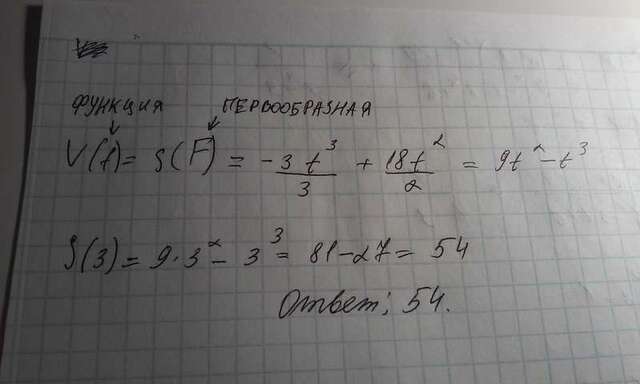 ФУНКЦИЯ ПЕРВООБРАЗНАЯ
V(t) = S(F) = -3t³/3 + 18t²/2 = 9t² - t³
S(3) = 9·3² - 3³ = 81 - 27 = 54
Ответ: 54.